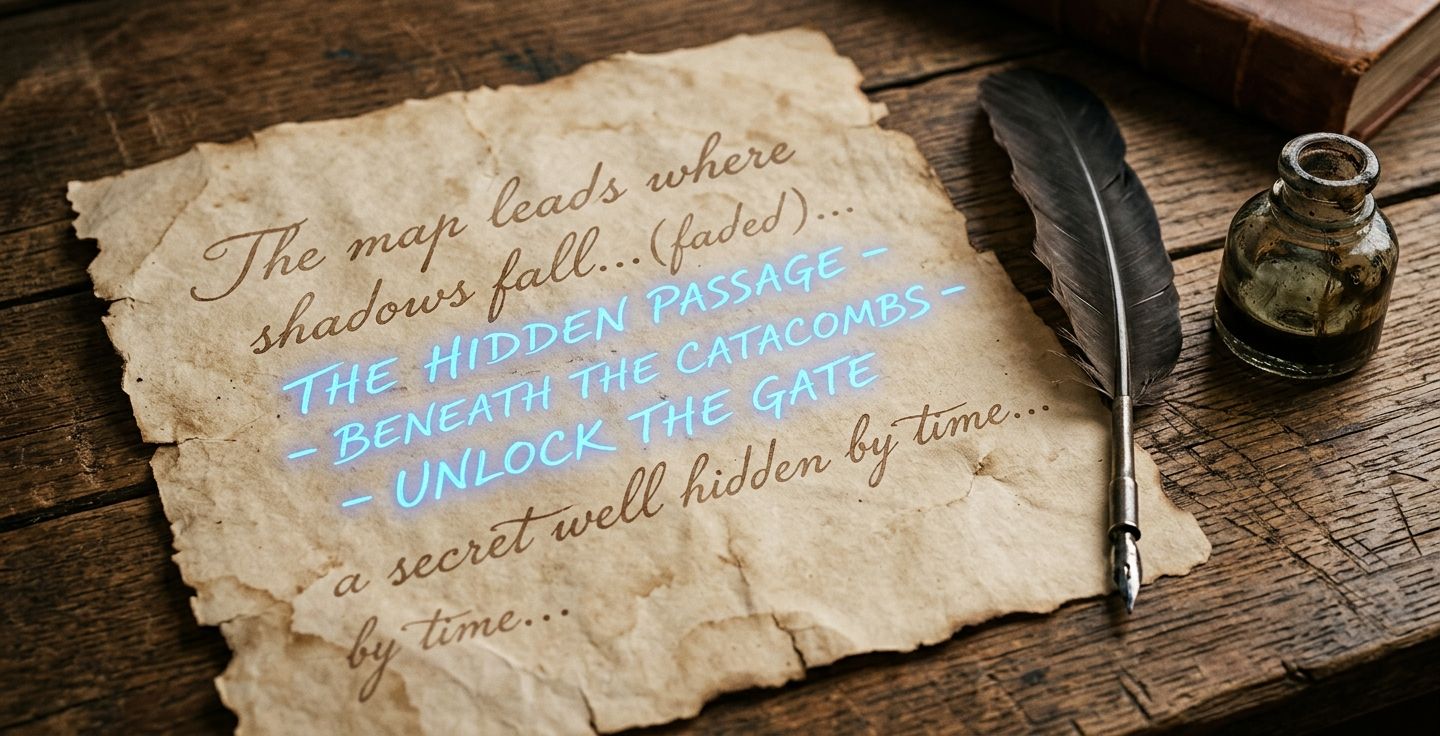 The map leads where
shadows fall...(faded)...
THE HIDDEN PASSAGE –
– BENEATH THE CATACOMBS –
– UNLOCK THE GATE
a secret well hidden by time...
by time...